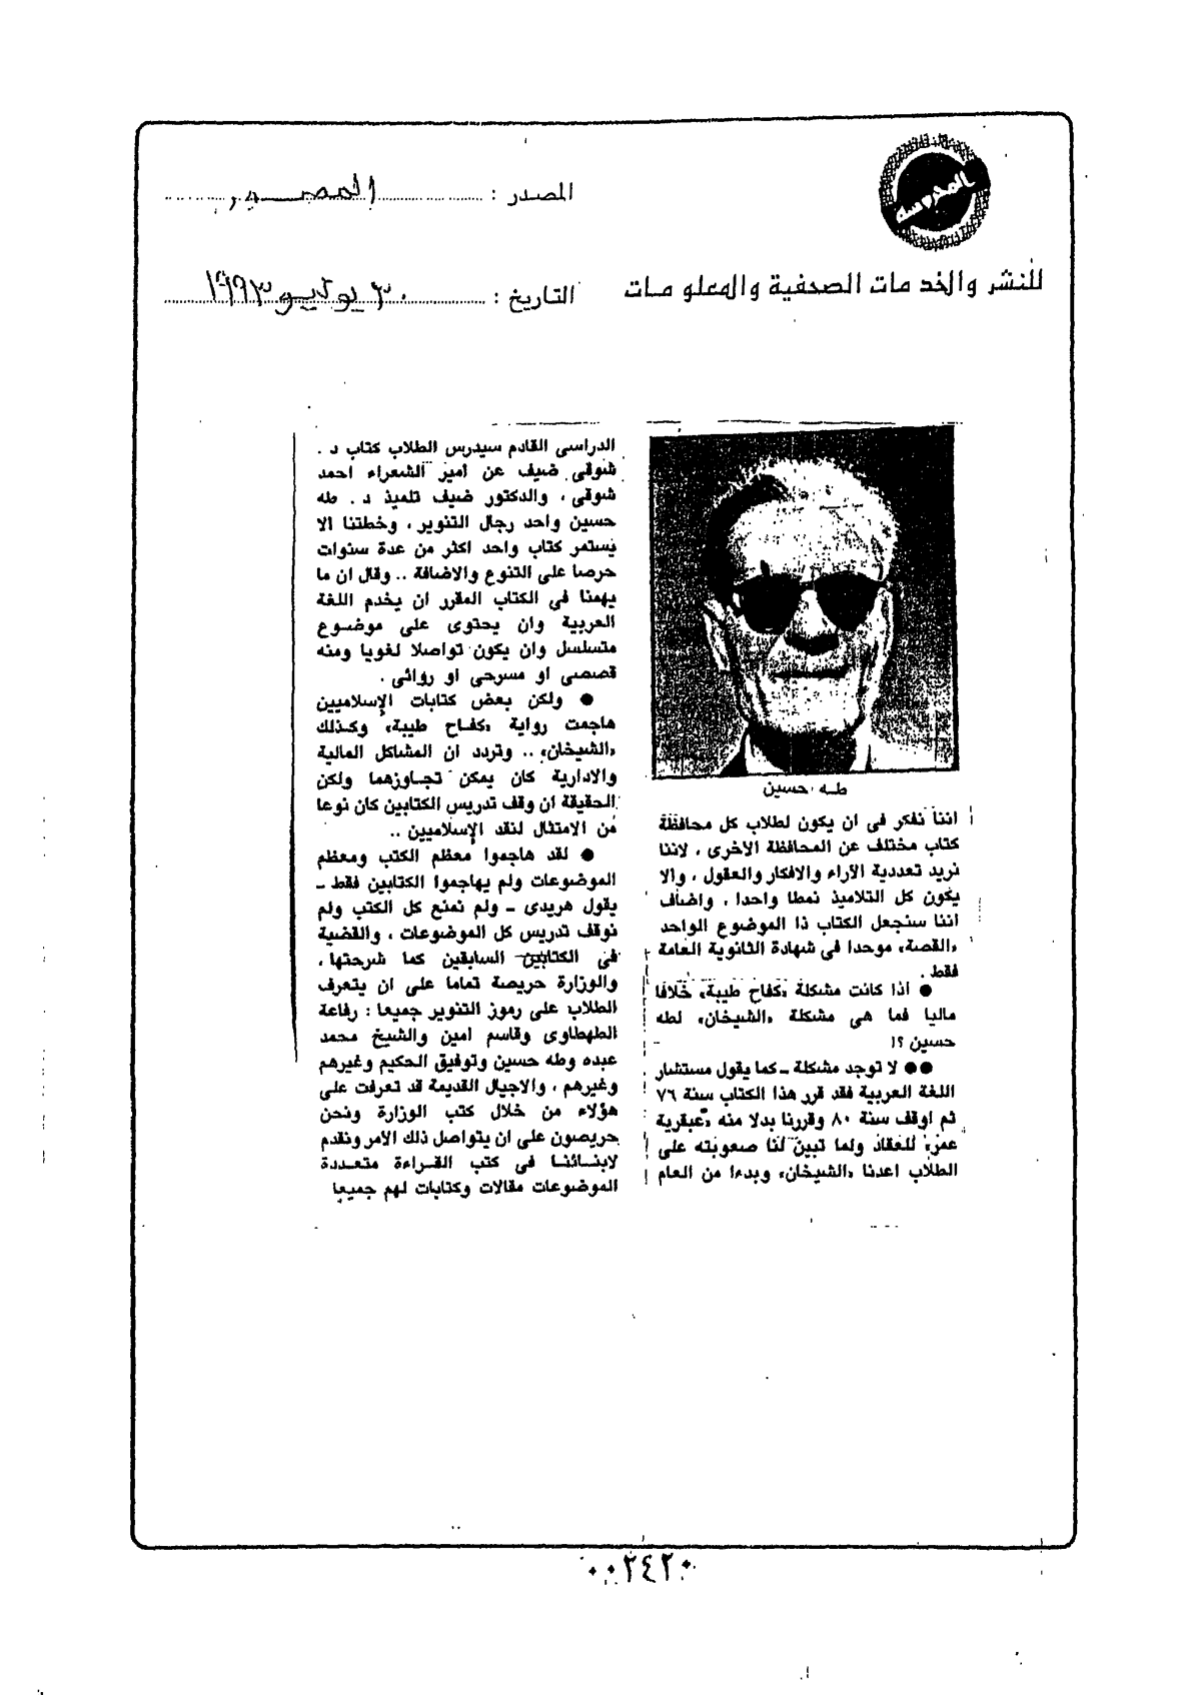 المحروسة
للنشر والخدمات الصحفية والمعلومات
المصدر : المصور
التاريخ : ٣٠ يوليو ١٩٩٣
طه حسين
اننا نفكر فى ان يكون لطلاب كل محافظة
كتاب مختلف عن المحافظة الأخرى ، لاننا
نريد تعددية الآراء والافكار والعقول ، والا
يكون كل التلاميذ نمطا واحدا ، واضاف
اننا سنجعل الكتاب ذا الموضوع الواحد
«القصة» موحدا فى شهادة الثانوية العامة
فقط .
● اذا كانت مشكلة «كفاح طيبة» خلافا
ماليا فما هى مشكلة «الشيخان» لطه
حسين ؟!
●● لا توجد مشكلة ـ كما يقول مستشار
اللغة العربية فقد قرر هذا الكتاب سنة ٧٦
ثم اوقف سنة ٨٠ وقررنا بدلا منه «عبقرية
عمر» للعقاد ولما تبين لنا صعوبته على
الطلاب اعدنا «الشيخان» وبدءا من العام
الدراسى القادم سيدرس الطلاب كتاب د .
شوقى ضيف عن امير الشعراء احمد
شوقى ، والدكتور ضيف تلميذ د . طه
حسين واحد رجال التنوير ، وخطتنا الا
يستمر كتاب واحد اكثر من عدة سنوات
حرصا على التنوع والاضافة .. وقال ان ما
يهمنا فى الكتاب المقرر ان يخدم اللغة
العربية وان يحتوى على موضوع
متسلسل وان يكون تواصلا لغويا ومنه
قصصى او مسرحى او روائى .
● ولكن بعض كتابات الإسلاميين
هاجمت رواية «كفاح طيبة» وكذلك
«الشيخان» .. وتردد ان المشاكل المالية
والادارية كان يمكن تجاوزهما ولكن
الحقيقة ان وقف تدريس الكتابين كان نوعا
من الامتثال لنقد الإسلاميين ..
● لقد هاجموا معظم الكتب ومعظم
الموضوعات ولم يهاجموا الكتابين فقط ـ
يقول هريدى ـ ولم نمنع كل الكتب ولم
نوقف تدريس كل الموضوعات ، والقضية
فى الكتابين السابقين كما شرحتها ،
والوزارة حريصة تماما على ان يتعرف
الطلاب على رموز التنوير جميعا : رفاعة
الطهطاوى وقاسم امين والشيخ محمد
عبده وطه حسين وتوفيق الحكيم وغيرهم
وغيرهم ، والاجيال القديمة قد تعرفت على
هؤلاء من خلال كتب الوزارة ونحن
حريصون على ان يتواصل ذلك الأمر ونقدم
لابنائنا فى كتب القراءة متعددة
الموضوعات مقالات وكتابات لهم جميعا
٠٠٢٤٢٠